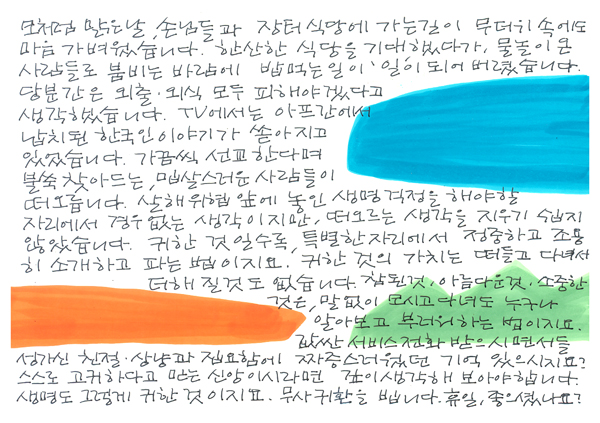 모처럼 맑은날, 손님들과 장터식당에 가는길이 무더위 속에도
마음 가벼웠습니다. 한산한 식당을 기대했다가, 물놀이 온
사람들로 붐비는 바람에 밥먹는일이 '일'이 되어 버렸습니다.
당분간은 외출·외식 모두 피해야겠다고
생각했습니다. TV에서는 아프간에서
납치된 한국인이야기가 쏟아지고
있었습니다. 가끔씩 선교한다며
불쑥찾아드는, 밉살스러운 사람들이
떠오릅니다. 살해위협 앞에 놓인 생명걱정을 해야할
자리에서 경우없는 생각이지만, 떠오르는 생각을 지우기 쉽지
않았습니다. 귀한 것일수록, 특별한자리에서 정중하고 조용
히 소개하고 파는 법이지요. 귀한 것의 가치는 떠들고 다녀서
더해질것도 없습니다. 참된것·아름다운것·소중한
것은, 말없이 모시고다녀도 누구나
알아보고 부러워하는 법이지요.
값싼 서비스전화 받으시면서들
성가신 친절·상냥과 집요함에 짜증스러웠던 기억 있으시지요?
스스로 고귀하다고 믿는 신앙이시라면 깊이생각해 보아야합니다.
생명도 그렇게 귀한 것이지요. 무사귀환을 빕니다. 휴일, 좋으셨나요?